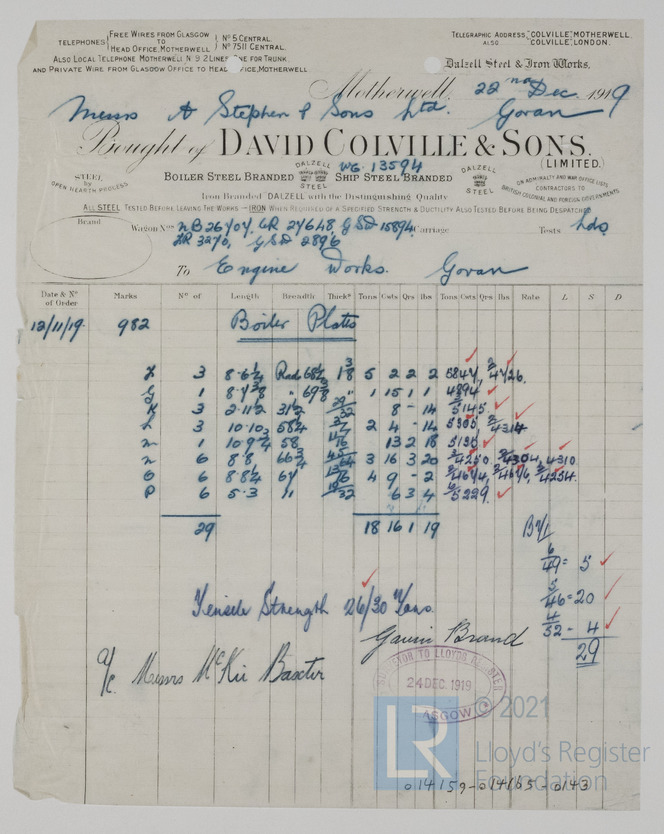 TELEPHONES { FREE WIRES FROM GLASGOW TO HEAD OFFICE, MOTHERWELL } No 5 CENTRAL. No 7511 CENTRAL.
ALSO LOCAL TELEPHONE MOTHERWELL No 92 LINE FOR TRUNK.
AND PRIVATE WIRE FROM GLASGOW OFFICE TO HEAD OFFICE, MOTHERWELL
TELEGRAPHIC ADDRESS, "COLVILLE", MOTHERWELL.
ALSO "COLVILLE", LONDON.
Dalzell Steel & Iron Works,
Motherwell, 22nd Dec. 1919
Messrs A Stephen & Sons Ltd. Govan
Bought of DAVID COLVILLE & SONS.
(LIMITED.)
WG 13594
STEEL by OPEN HEARTH PROCESS
BOILER STEEL BRANDED DALZELL STEEL SHIP STEEL BRANDED DALZELL STEEL
ON ADMIRALTY AND WAR OFFICE LISTS CONTRACTORS TO BRITISH COLONIAL AND FOREIGN GOVERNMENTS
Iron Branded "DALZELL" with the Distinguishing Quality
ALL STEEL TESTED BEFORE LEAVING THE WORKS — IRON WHEN REQUIRED OF A SPECIFIED STRENGTH & DUCTILITY ALSO TESTED BEFORE BEING DESPATCHED
Brand Wagon Nos NB 26707, GR 27648, GSD 15894 Carriage Tests Lds
GR 3270, GSD 2896
To Engine Works. Govan
Date & No of Order Marks No of Length Breadth Thickss Tons Cwts Qrs lbs Tons Cwts Qrs lbs Rate L S D
12/11/19. 982 Boiler Plates
3 5 2 2 2
G 1 1 15 1 1 4894
K 3 2.11½ 31½ 8 - 14 5145
3 10.10 2 4 - 14
m 1 58 13 2 18
n 6 8.8 3 16 3 20 4250 4304, 4310
O 6 67 4 9 - 2 4254
P 6 5.3 " 6 3 4 5229
29 18 16 1 19
6/49 = 5
5/46 = 20
4/52 - 4
29
Tensile Strength 26/30 Tons.
Gavin Brand
a/c Messrs McKie Baxter
SURVEYOR TO LLOYDS REGISTER
24 DEC. 1919
GLASGOW
LR © 2021
Lloyd's Register
Foundation
014159-014165-0143